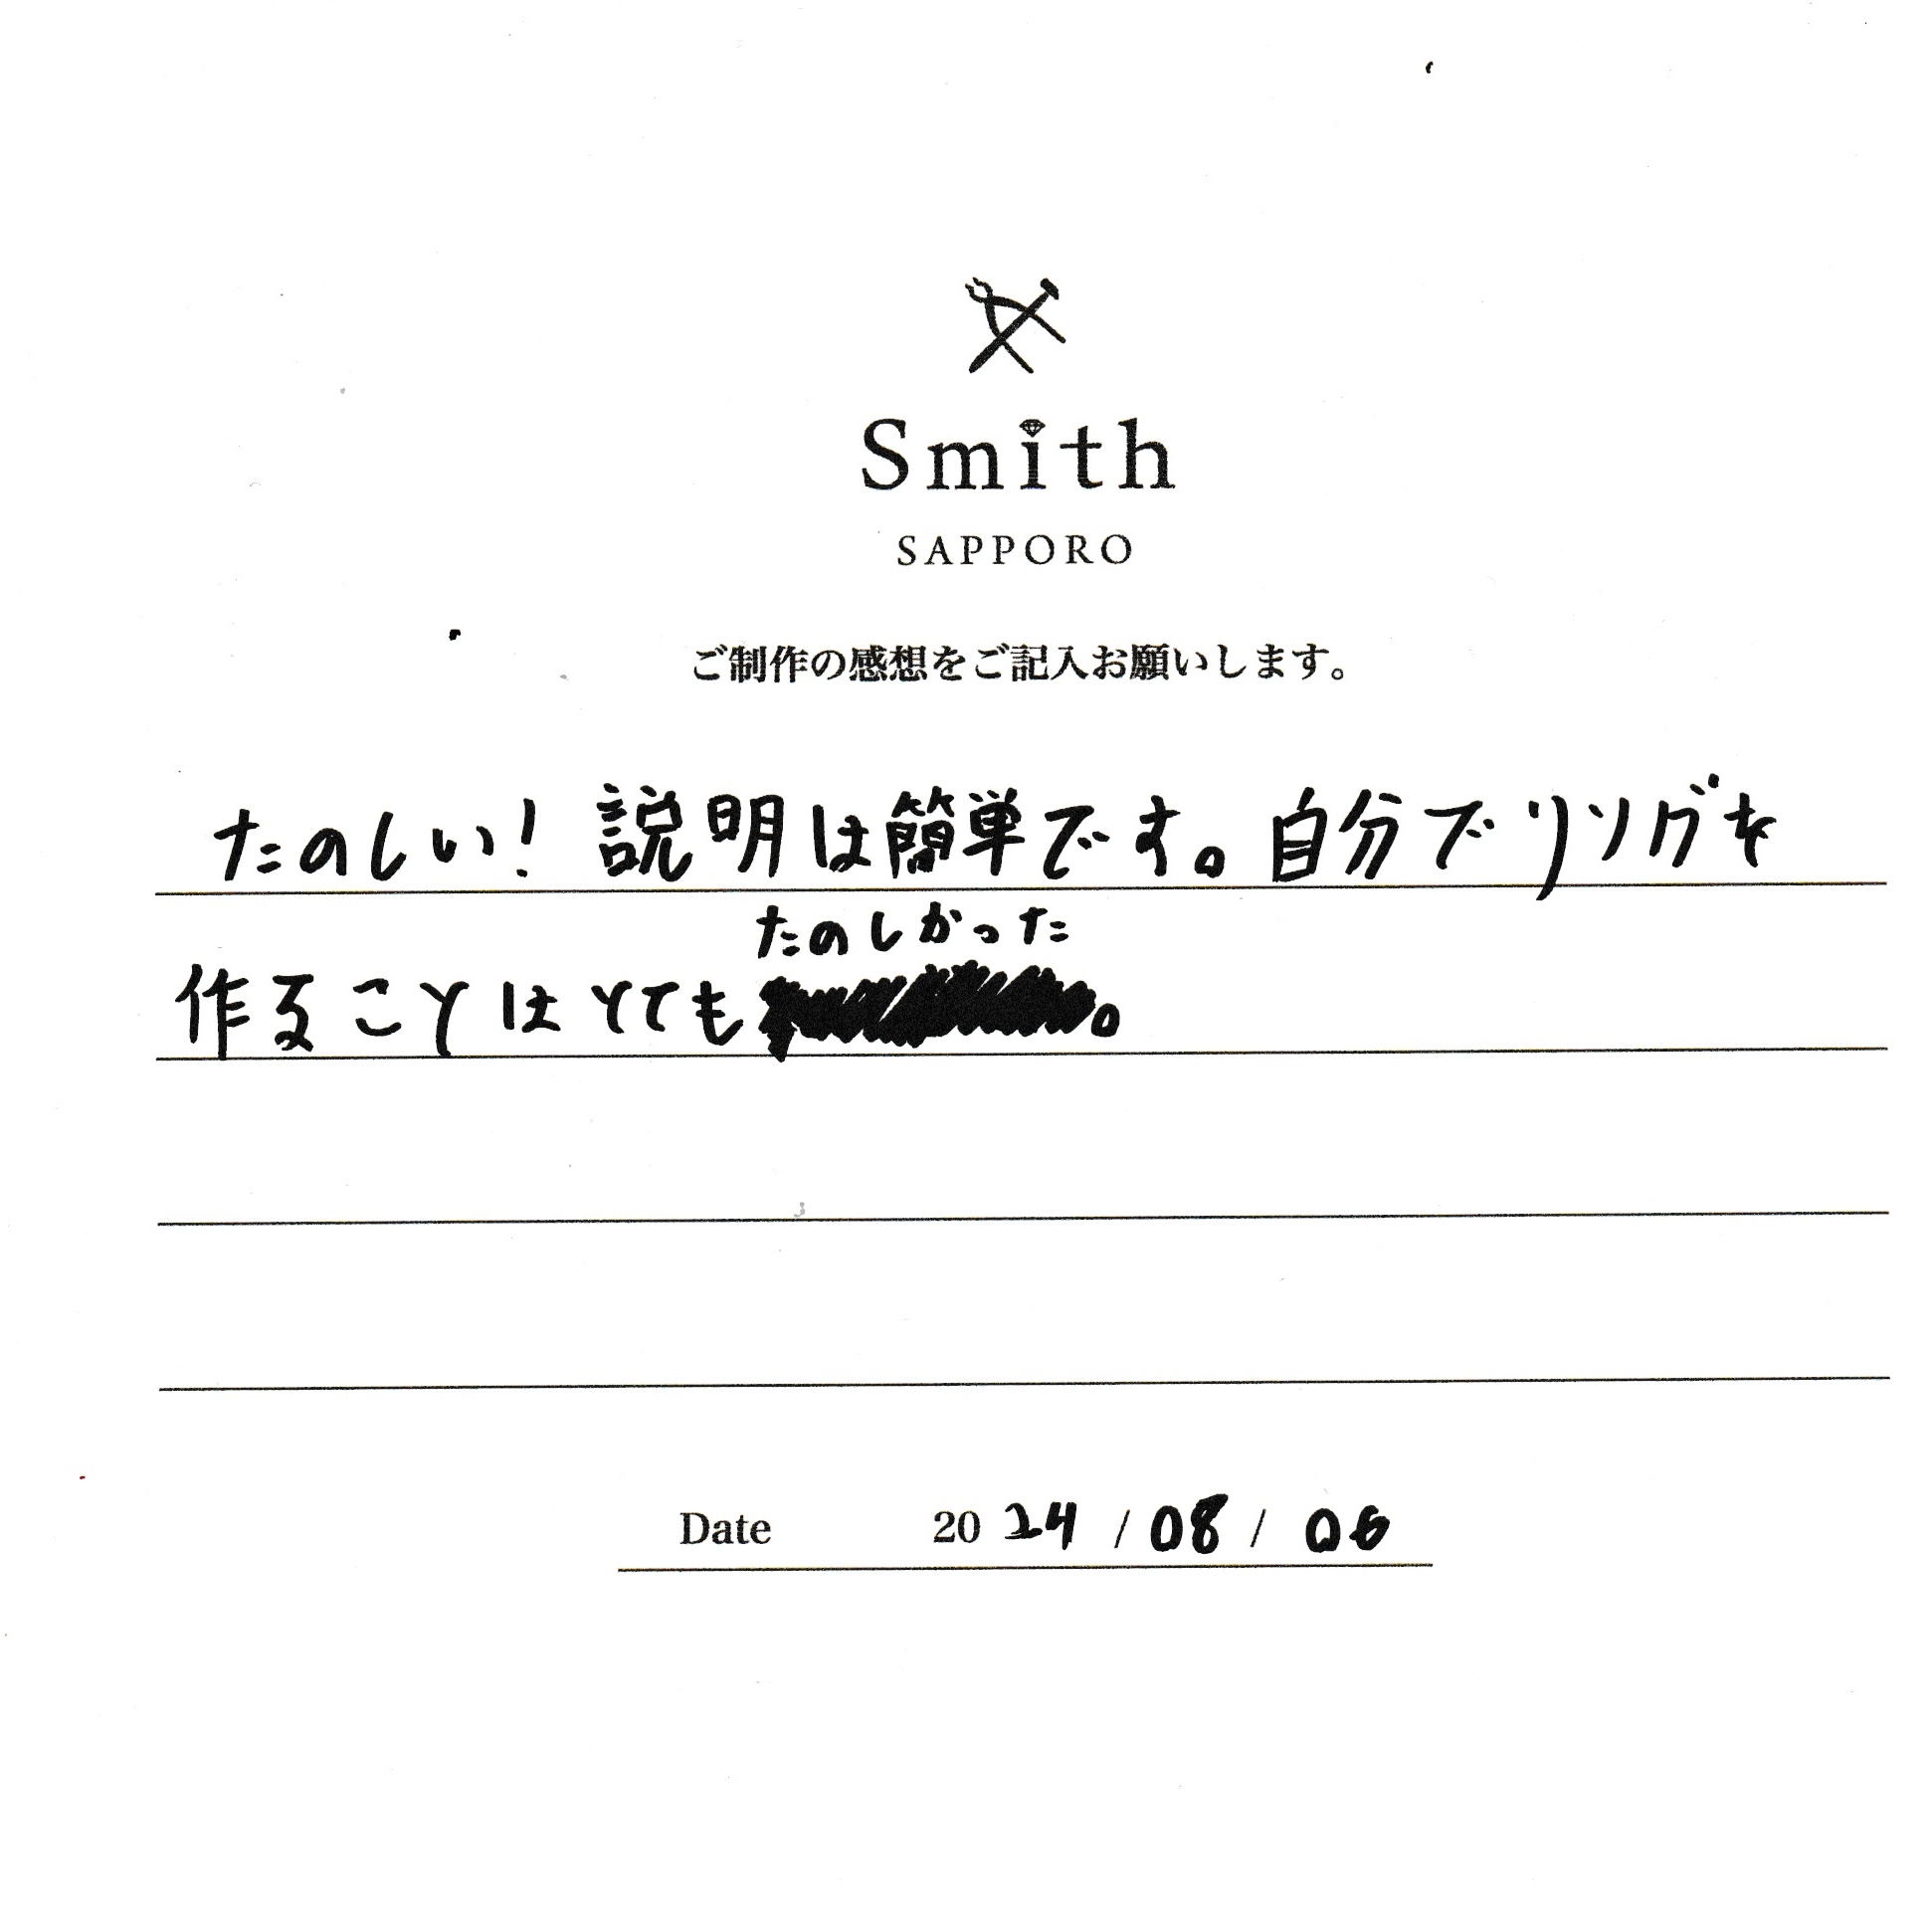 Smith
SAPPORO
ご制作の感想をご記入お願いします。
たのしい！説明は簡単です。自分でリングを
たのしかった
作ることはとても。
Date 2024/08/06